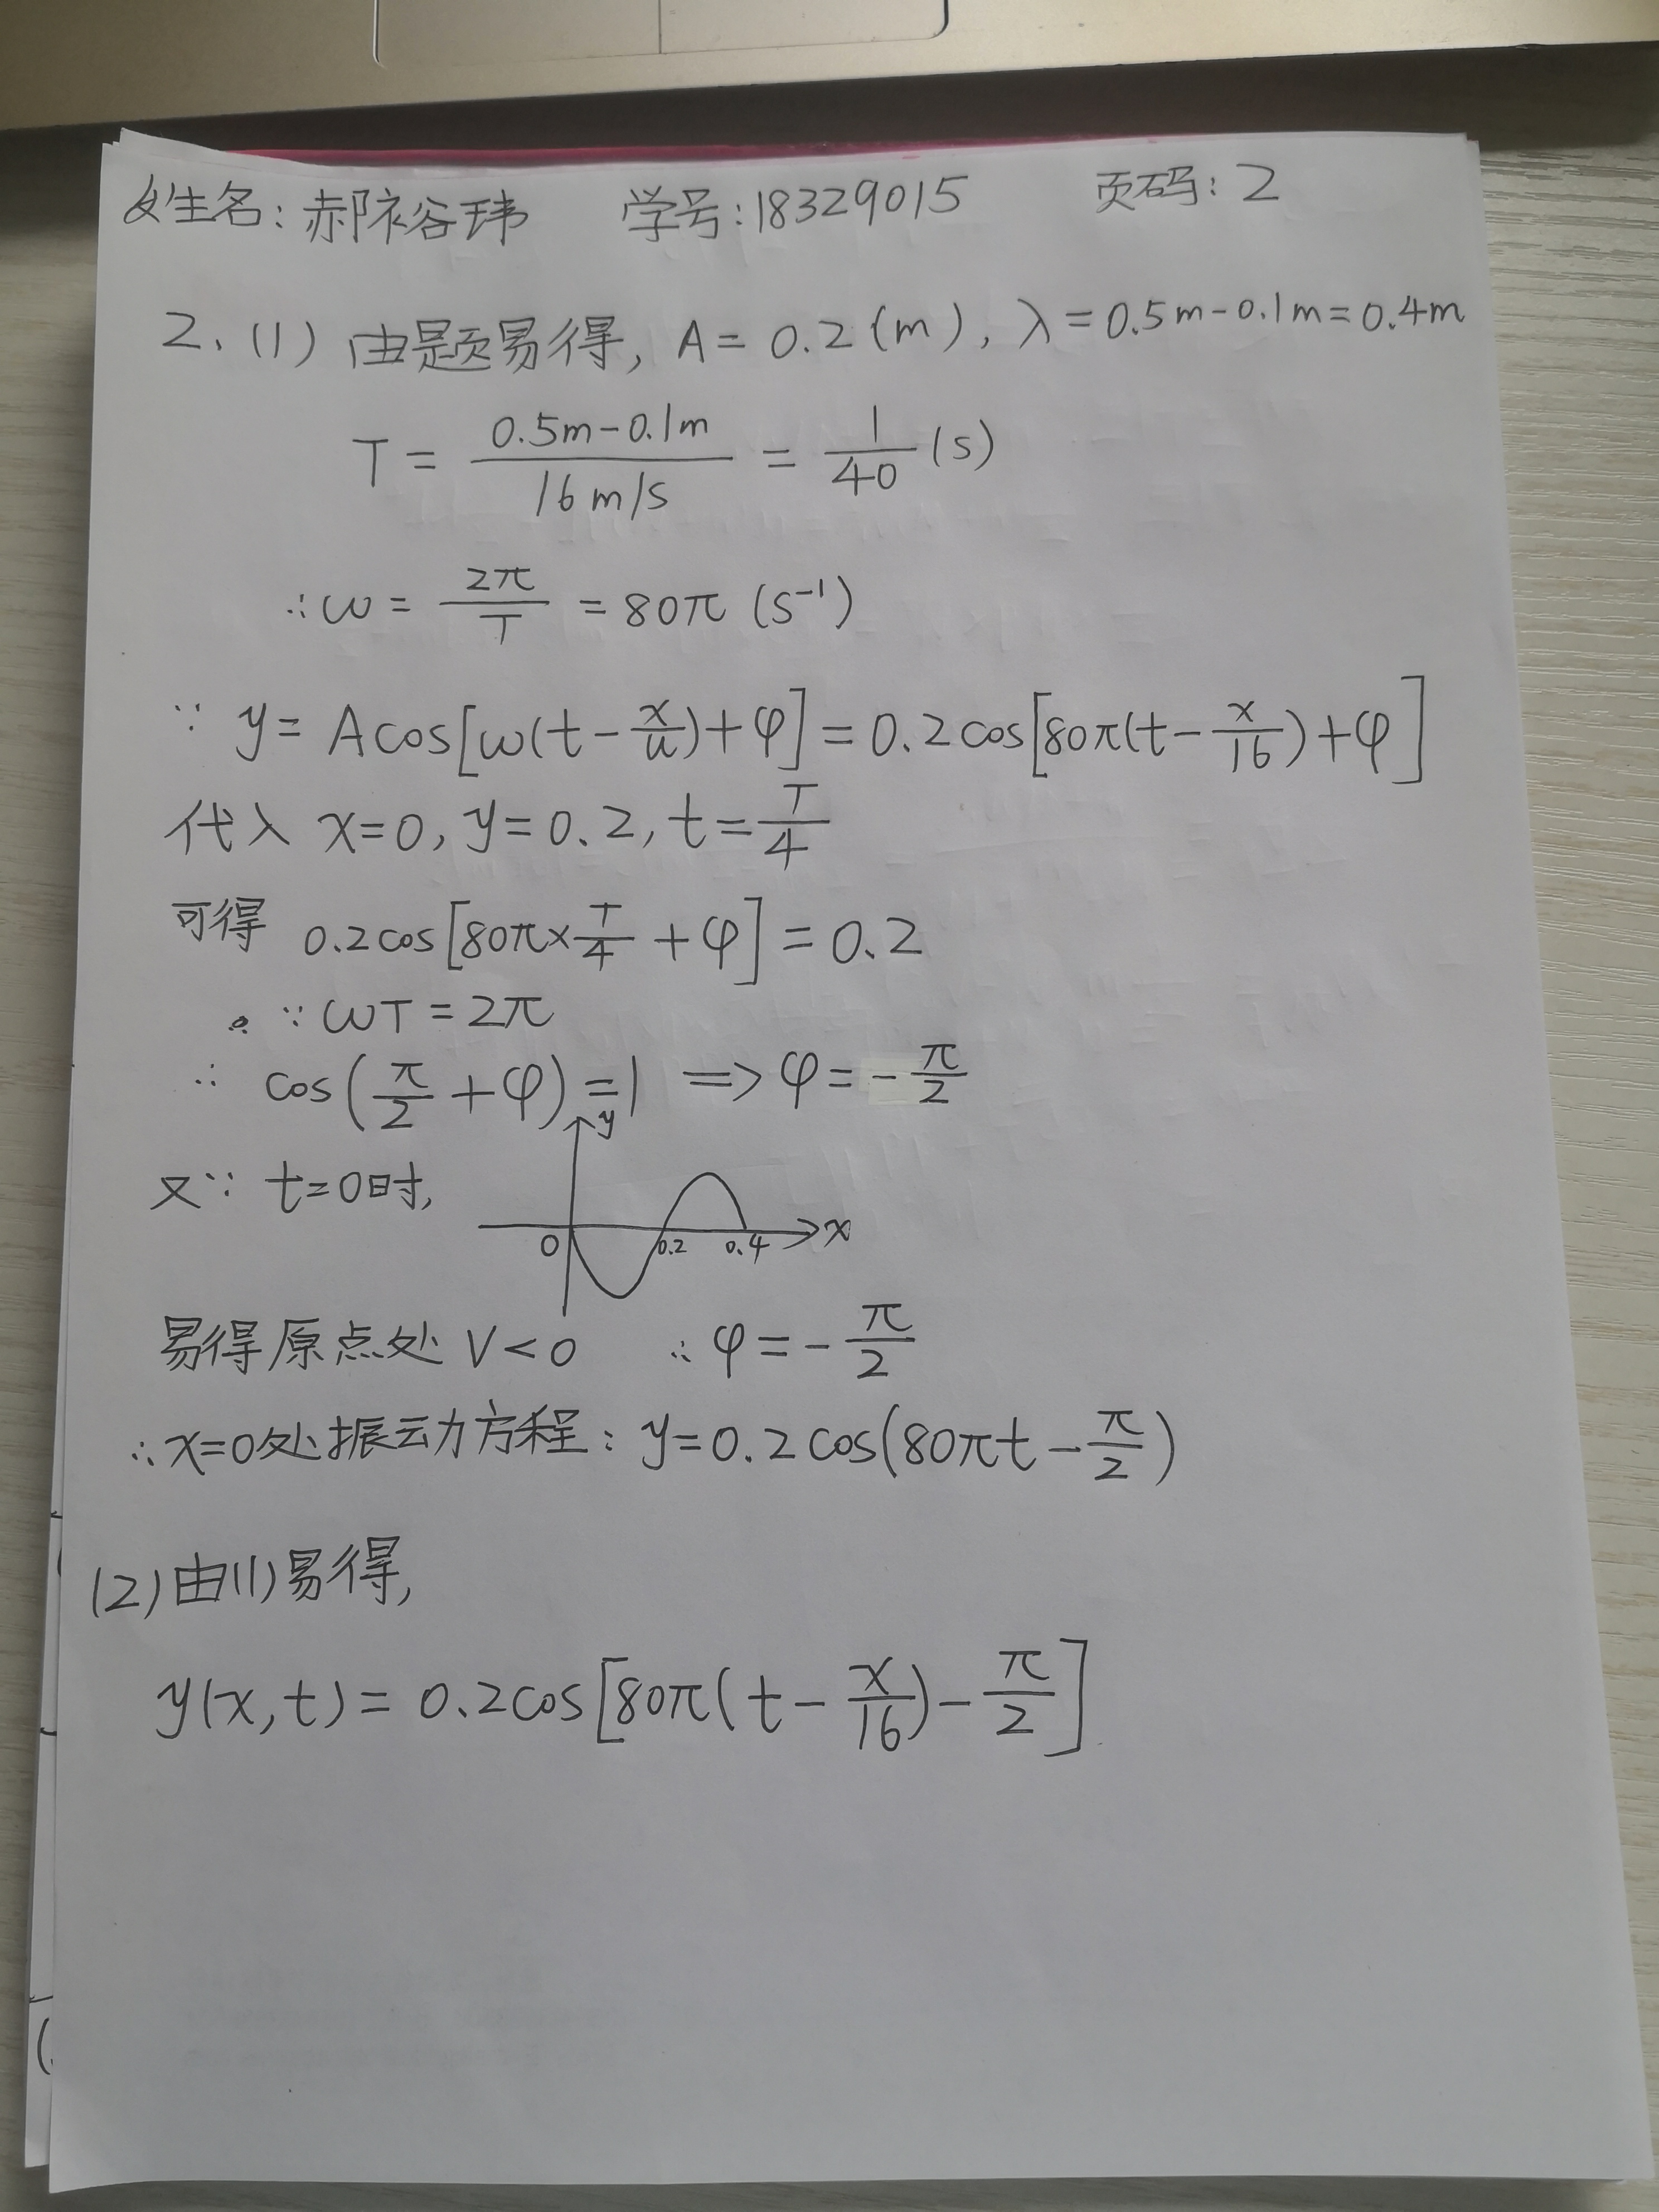 姓名: 郝裕玮 学号: 18329015 页码: 2
2、(1) 由题易得, A = 0.2 (m), λ = 0.5m - 0.1m = 0.4m
T = \frac{0.5m - 0.1m}{16 m/s} = \frac{1}{40} (s)
∴ ω = \frac{2π}{T} = 80π (s⁻¹)
∵ y = A cos[ω(t - \frac{x}{u}) + φ] = 0.2 cos[80π(t - \frac{x}{16}) + φ]
代入 x=0, y=0.2, t=\frac{T}{4}
可得 0.2 cos[80π×\frac{T}{4} + φ] = 0.2
∵ ωT = 2π
∴ cos(\frac{π}{2} + φ) = 1 ⟹ φ = -\frac{π}{2}
又∵ t=0时,
y
0 0.2 0.4 x
易得原点处 V < 0 ∴ φ = -\frac{π}{2}
∴ x=0处振动方程: y = 0.2 cos(80πt - \frac{π}{2})
(2) 由(1)易得,
y(x,t) = 0.2 cos[80π(t - \frac{x}{16}) - \frac{π}{2}]